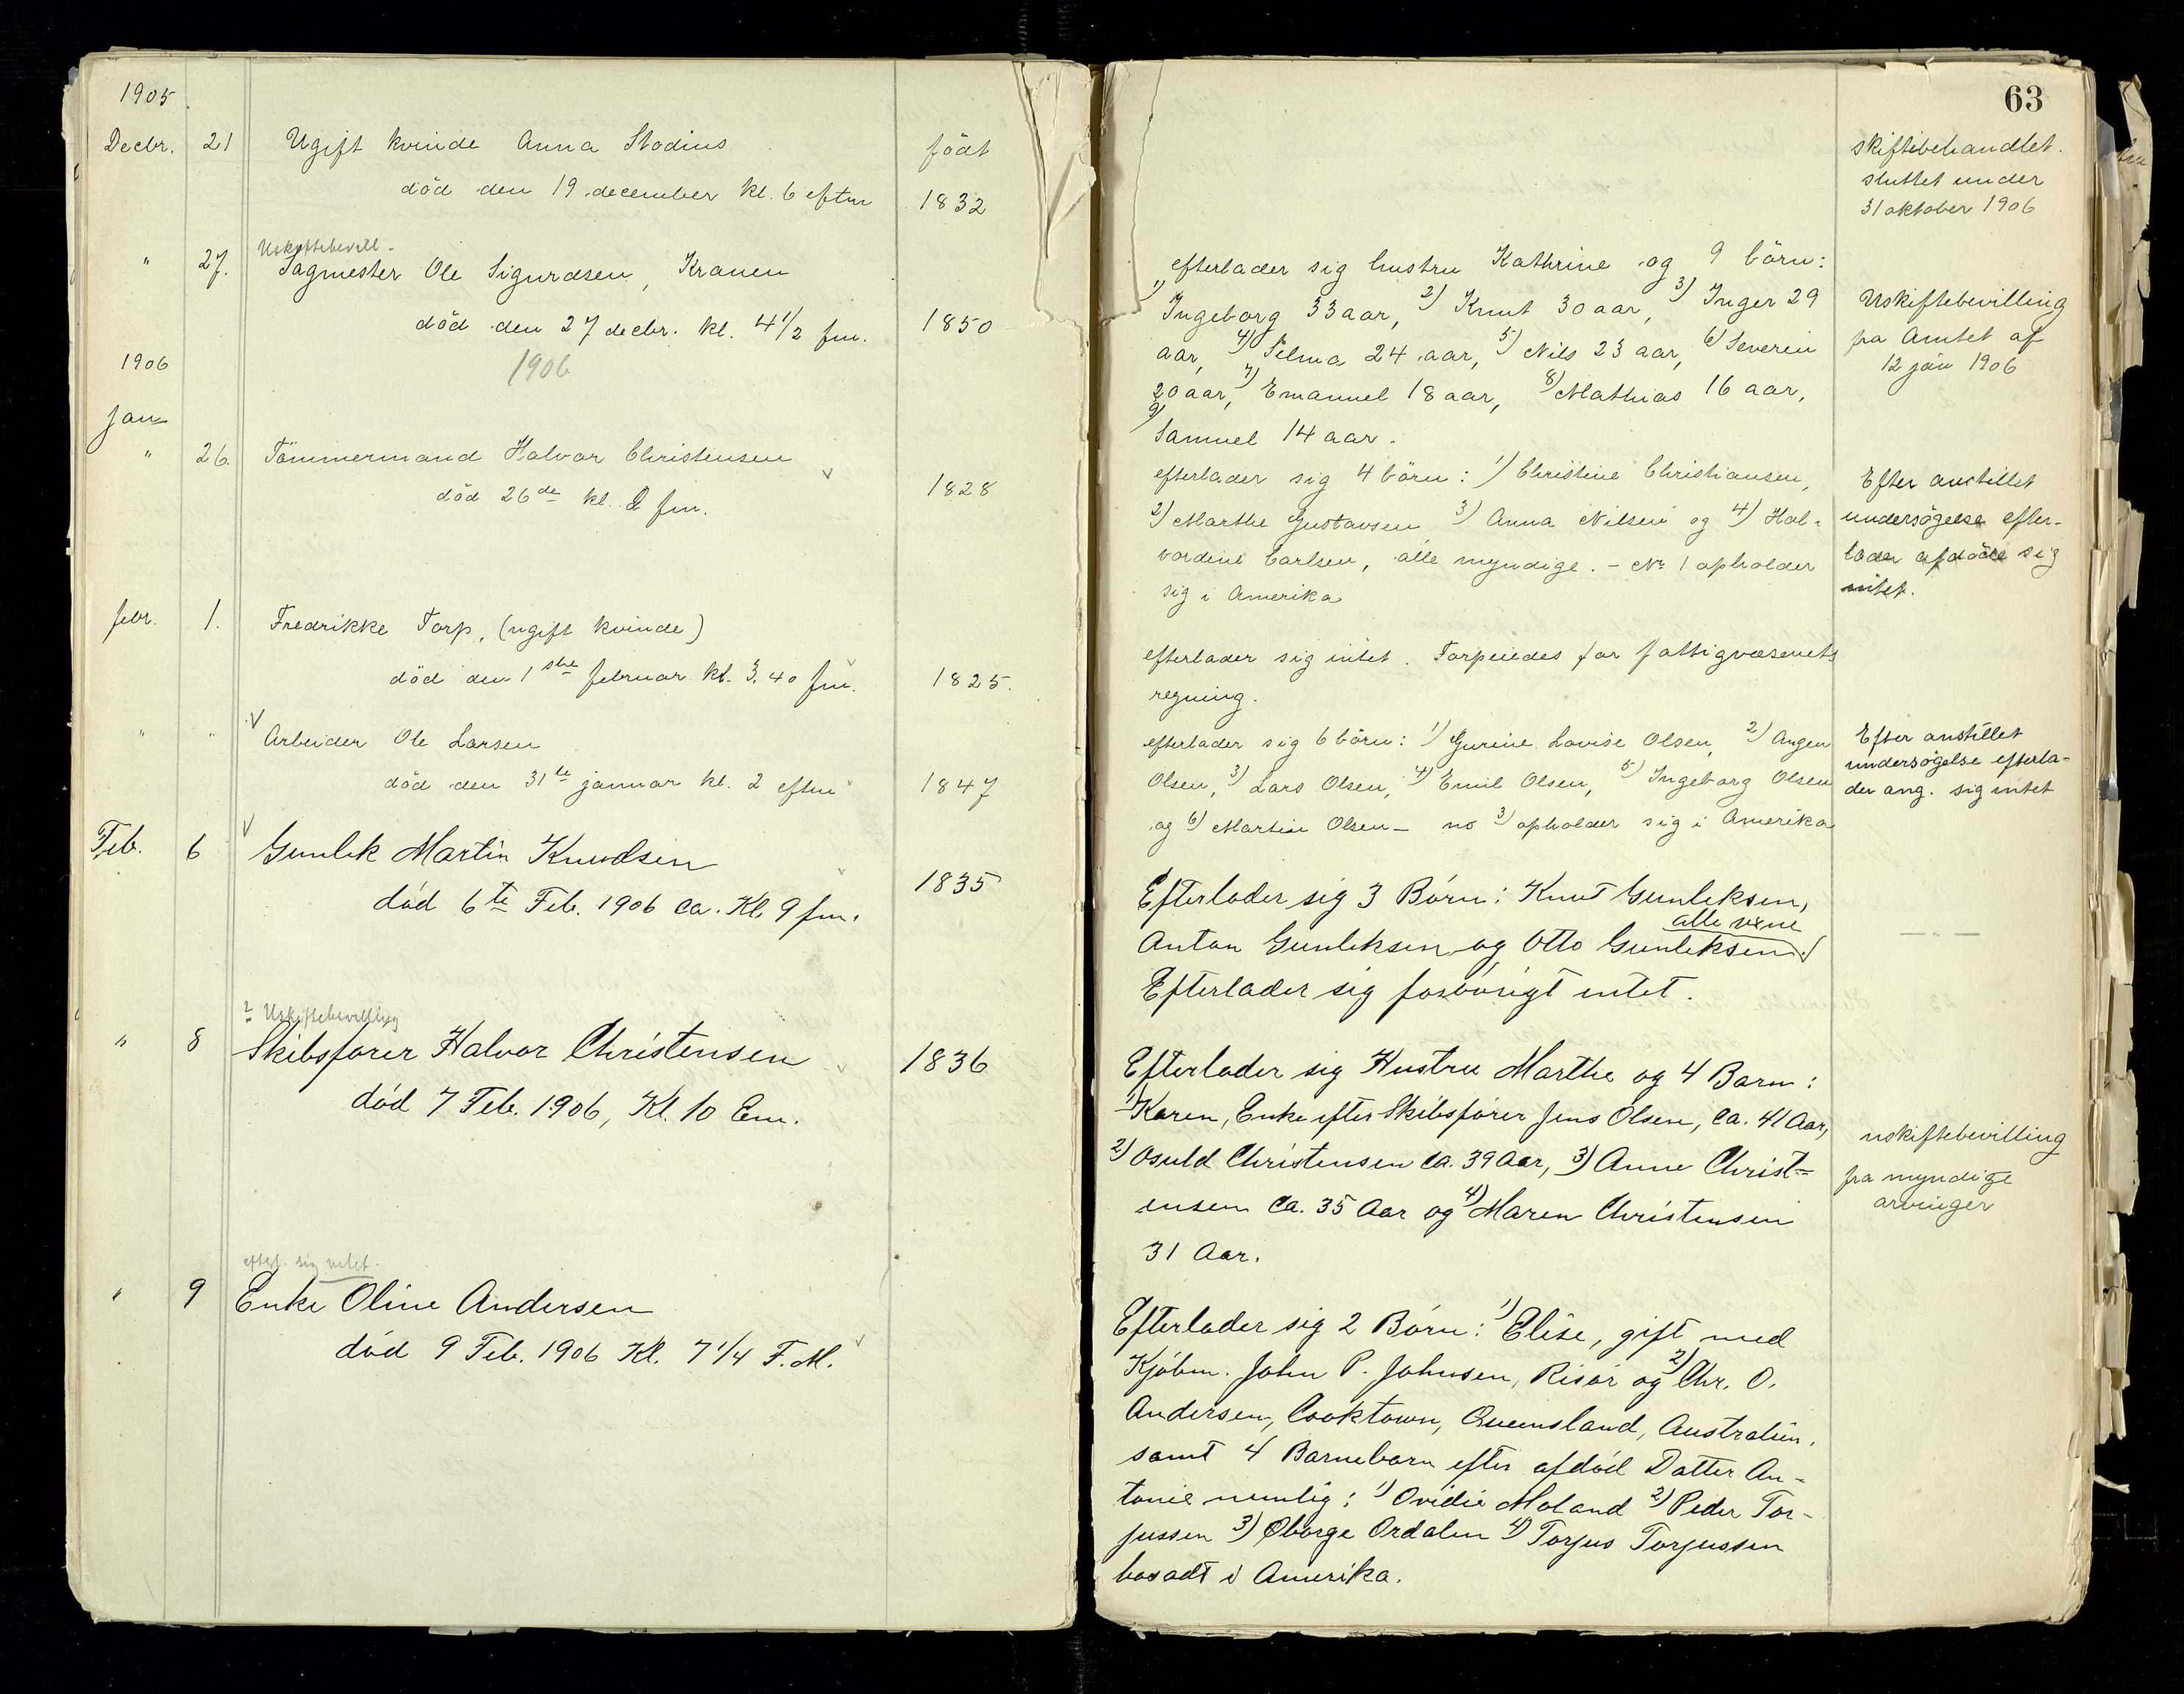 1905
Decbr. 21 Ugift kvinde Anna Stodius født
død den 19 december kl. 6 eftm 1832
" 27. Uskiftebevill.
Sagmester Ole Sigurdsen, Kranen
død den 27 decbr. kl. 4 1/2 fm. 1850
1906 1906
Jan
" 26. Tömmermand Halvor Christensen
død 26de kl. 2 fm. 1828
febr. 1. Fredrikke Torp, (ugift kvinde)
død den 1ste februar kl. 3.40 fm. 1825.
" " Arbeider Ole Larsen
död den 31te januar kl. 2 eftm 1847
Feb. 6 Gunlek Martin Knudsen
død 6te Feb. 1906 ca. Kl. 9 fm. 1835
? Uskiftebevilling
" 8 Skibsfører Halvor Christensen 1836
død 7 Feb. 1906, Kl. 10 Em.
efterl. sig intet.
" 9 Enke Oline Andersen
død 9 Feb. 1906 Kl. 7 1/4 F.M.
63
skiftebehandlet.
sluttet under
31 oktober 1906
efterlader sig hustru Kathrine og 9 börn:
1) Ingeborg 33 aar, 2) Knut 30 aar, 3) Inger 29
aar, 4) Selma 24 aar, 5) Nils 23 aar, 6) Severin
20 aar, 7) Emanuel 18 aar, 8) Mathias 16 aar,
9) Samuel 14 aar.
Uskiftebevilling
fra Amtet af
12 jan 1906
efterlader sig 4 börn: 1) Christine Christiansen,
2) Marthe Gustavsen 3) Anna Nilsen og 4) Hal-
vordine Carlsen, alle myndige. - No 1 opholder
sig i Amerika
Efter anstillet
undersögelse efter-
lader afdöde sig
intet.
efterlader sig intet. Forpleiedes for fattigvæsenets
regning.
efterlader sig 6 börn: 1) Gurine Lovise Olsen, 2) Angen
Olsen, 3) Lars Olsen, 4) Emil Olsen, 5) Ingeborg Olsen
og 6) Martin Olsen - no 3) opholder sig i Amerika
Efter anstillet
undersögelse efterla-
der ang. sig intet
Efterlader sig 3 Børn: Knut Gunleksen,
alle vxne
Anton Gunleksen og Otto Gunleksen.
Efterlader sig forøvrigt intet.
— " —
Efterlader sig Hustru Marthe og 4 Barn:
1) Karen, Enke efter Skibsfører Jens Olsen, ca. 41 Aar,
2) Osuld Christensen ca. 39 Aar, 3) Anne Christ-
ensen ca. 35 Aar og 4) Maren Christensen
31 Aar.
uskiftebevilling
fra myndige
arvinger
Efterlader sig 2 Børn: 1) Elise, gift med
Kjøbm. John P. Johnsen, Risør og 2) Chr. O.
Andersen, Cooktown, Queensland, Australien,
samt 4 Barnebarn efter afdød Datter An-
tonie nemlig: 1) Ovidie Moland 2) Peder Tor-
jussen 3) Oborge Ordalen 4) Torjus Torjussen
bosadt i Amerika.